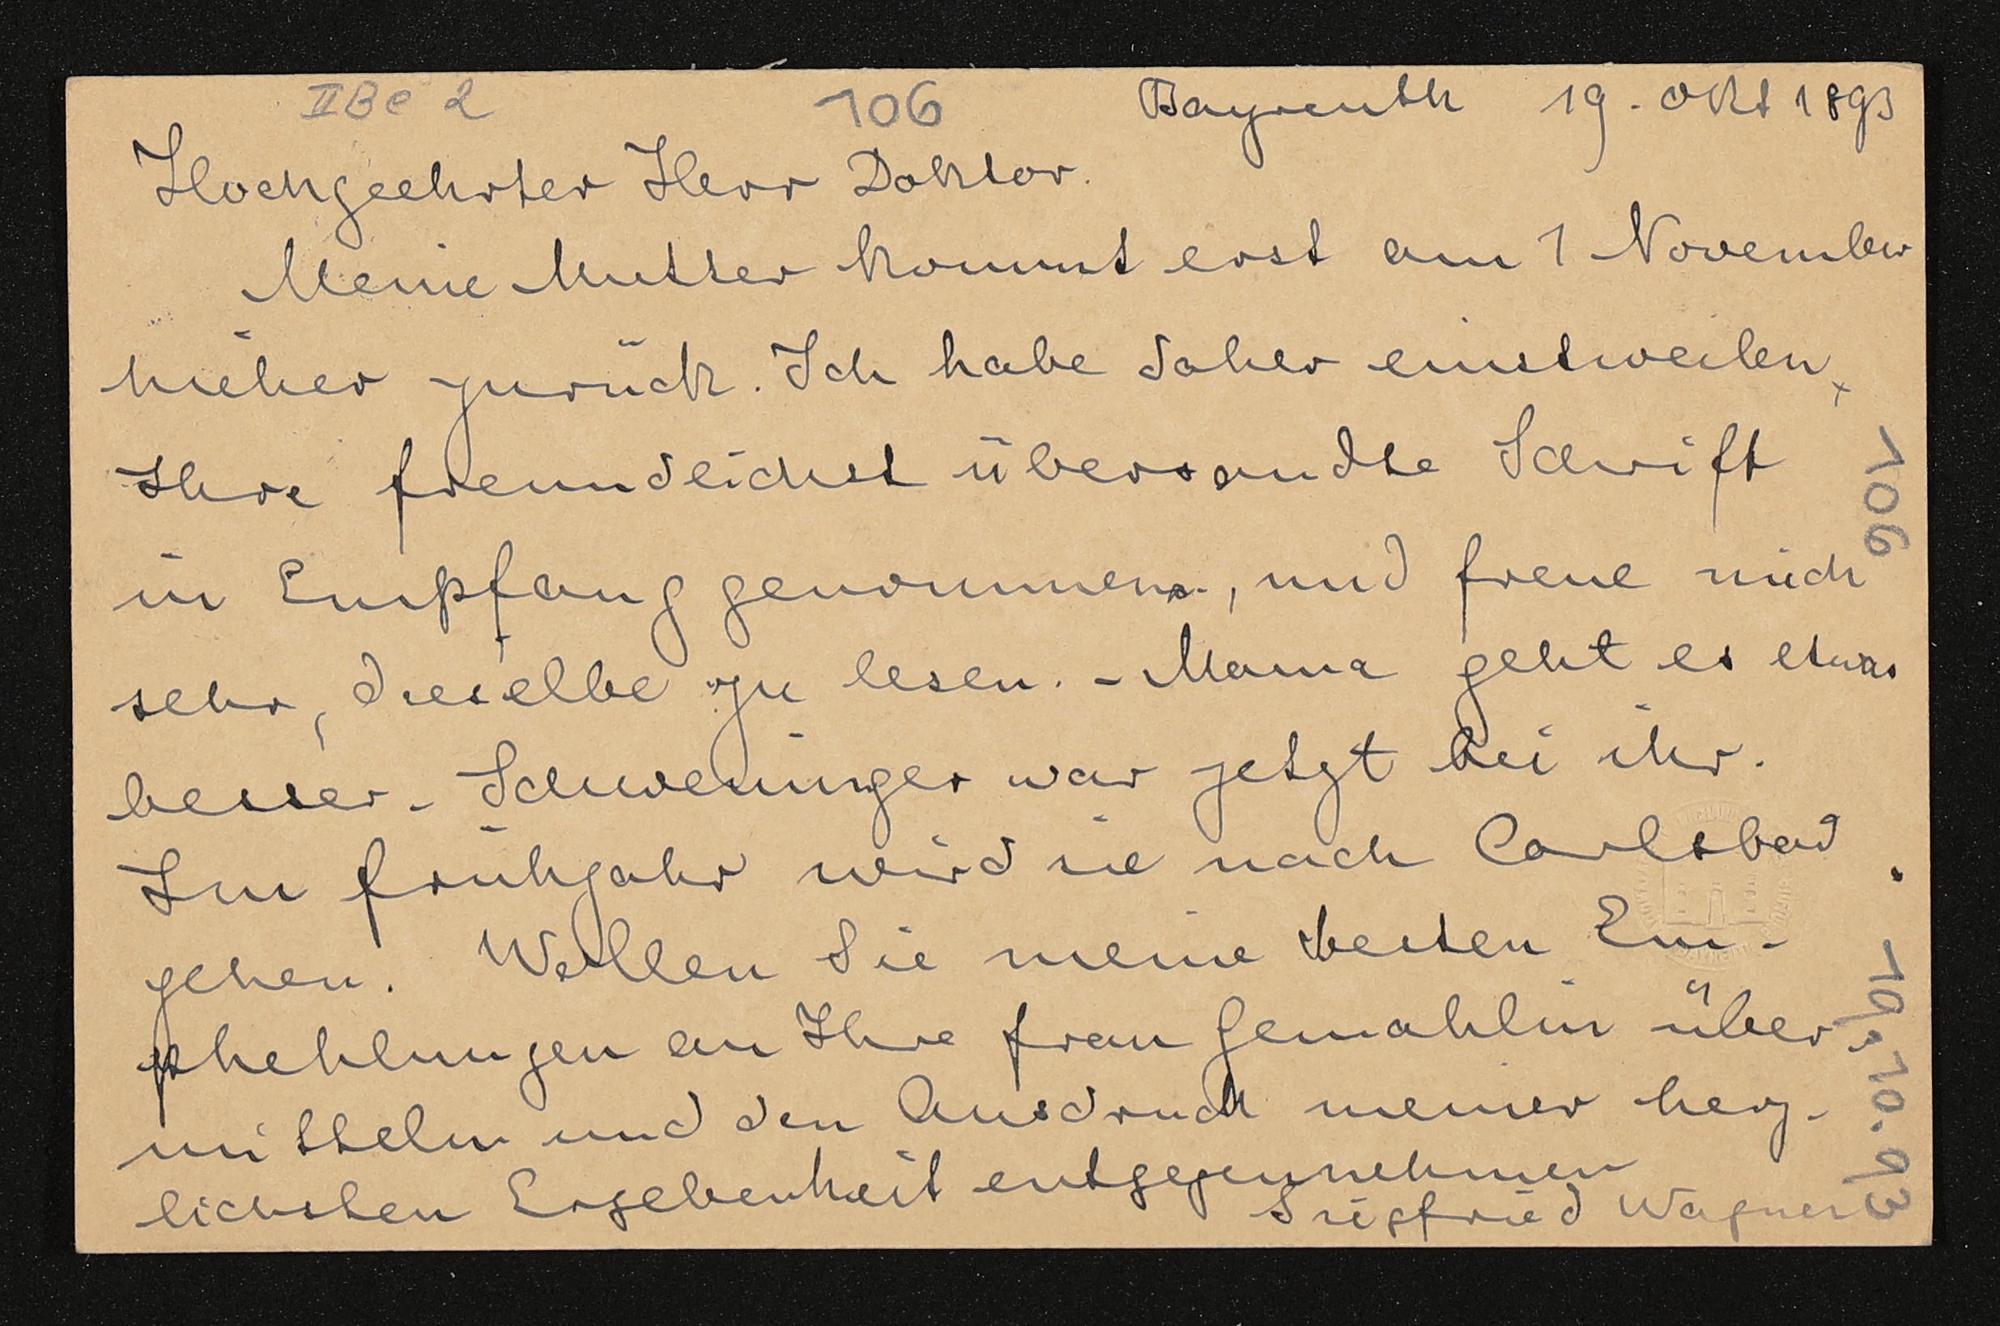 IIBe 2 106 Bayreuth 19. Okt 1893
Hochgeehrter Herr Doktor.
Meine Mutter kommt erst am 1 November
hieher zurück. Ich habe daher einstweilen,
Ihre freundlichst übersandte Schrift
in Empfang genommen, und freue mich
sehr, dieselbe zu lesen. - Mama geht es etwas
besser. Schweninger war jetzt bei ihr.
Im Frühjahr wird sie nach Carlsbad
gehen. Wollen Sie meine besten Em-
phehlungen an Ihre Frau Gemahlin über
mitteln und den Ausdruck meiner herz-
lichsten Ergebenheit entgegennehmen
Siegfried Wagner
106
19.10.93